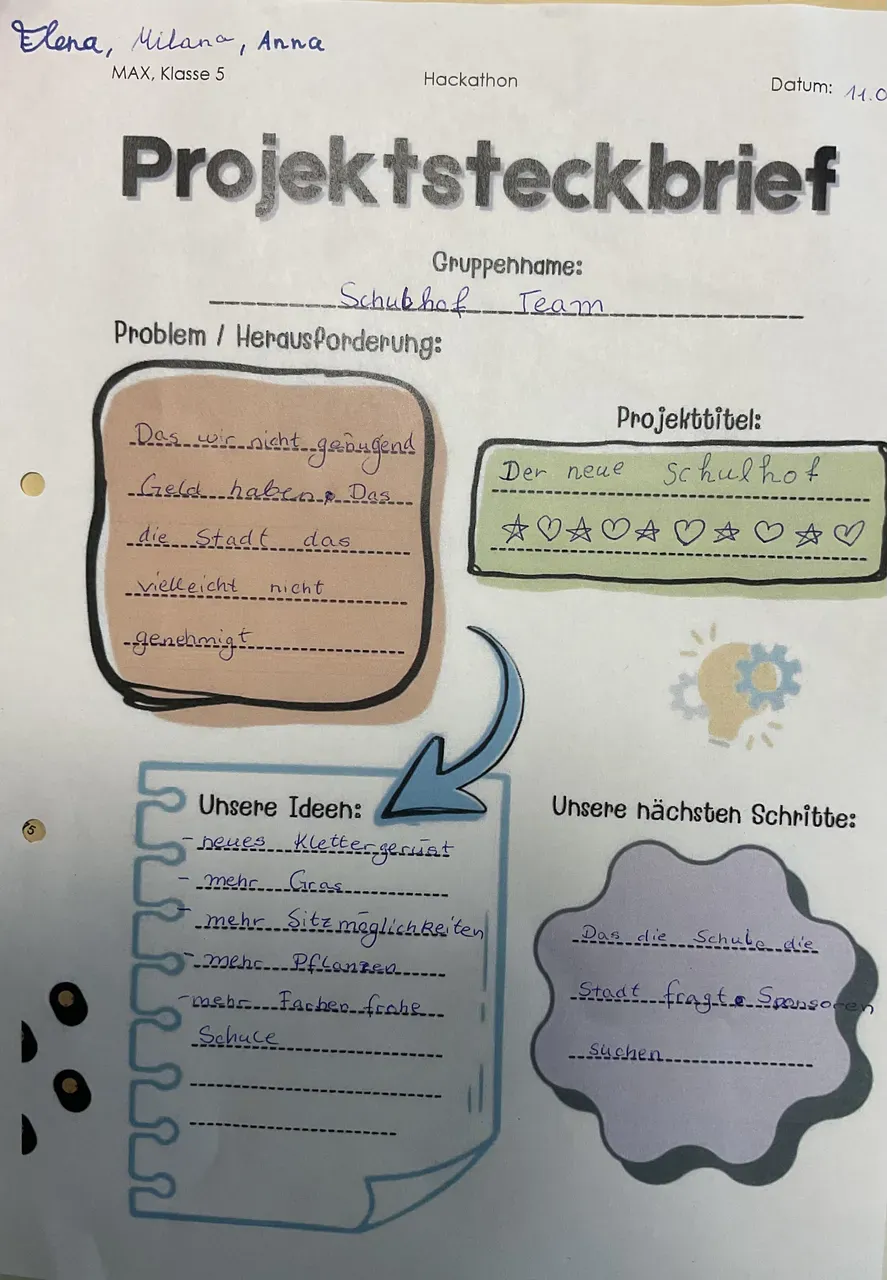 Elena, Milana, Anna
MAX, Klasse 5 Hackathon Datum: 11.0
Projektsteckbrief
Gruppenname:
Schulhof Team
Problem / Herausforderung:
Das wir nicht genügend
Geld haben. Das
die Stadt das
vielleicht nicht
genehmigt
Projekttitel:
Der neue Schulhof
Unsere Ideen:
- neues Klettergerüst
- mehr Gras
- mehr Sitzmöglichkeiten
- mehr Pflanzen
- mehr Farben frohe
Schule
Unsere nächsten Schritte:
Das die Schule die
Stadt fragt. Sponsoren
suchen